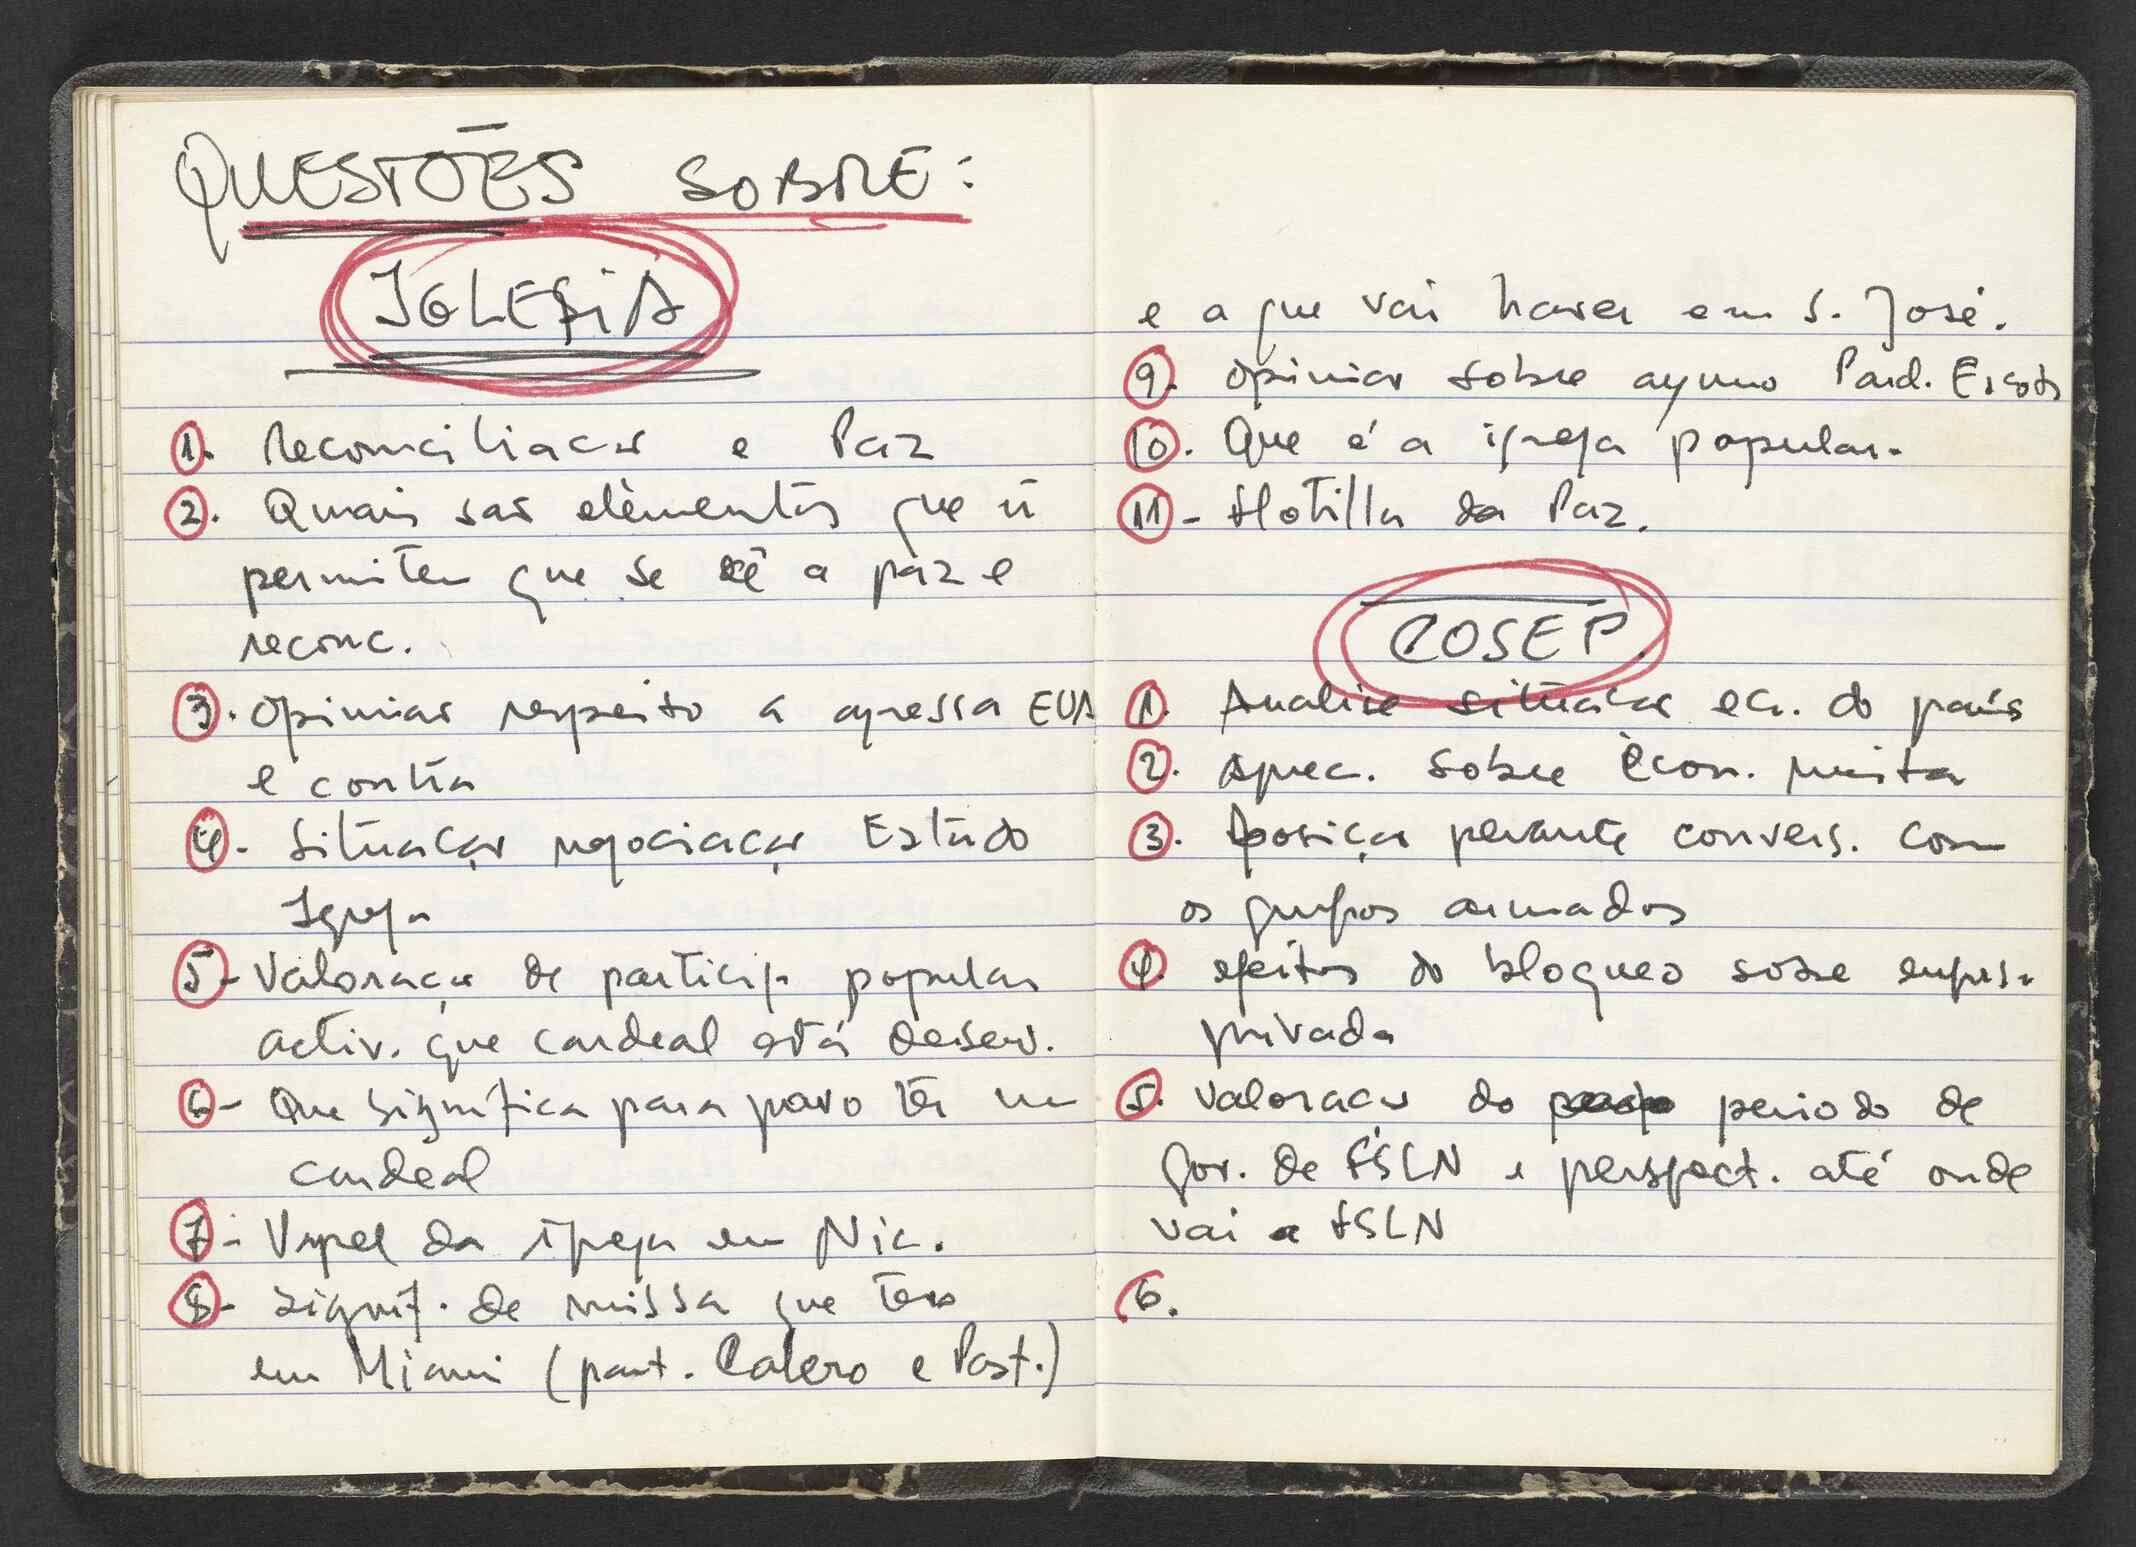 QUESTÕES SOBRE:
IGLESIA
1. Reconciliacao e Paz
2. Quais sao elementos que
permitem que se dê a paz e
reconc.
3. opiniao respeito a agressa EUA
e contra
4- Situaçao negociaçao Estado
Igreja
5- Valoraçao de particip. popular
activ. que cardeal está desenv.
6- Que significa para povo ter um
cardeal
7- Papel da igreja em Nic.
8- signif. de missa que teve
em Miami (part. Calero e Past.)
e a que vai haver em S. José.
9. opiniao sobre ayuno Pad. Escoto
10. Que é a igreja popular.
11- flotilla da Paz.
COSEP.
1. Analise situacao ec. do país
2. Aprec. sobre Econ. mixta
3. posiçao perante convers. com
os grupos armados
4. efeitos do bloqueo sobre empres.
privada
5. Valoracao do periodo de
gov. de FSLN e perspect. até onde
vai a FSLN
6.